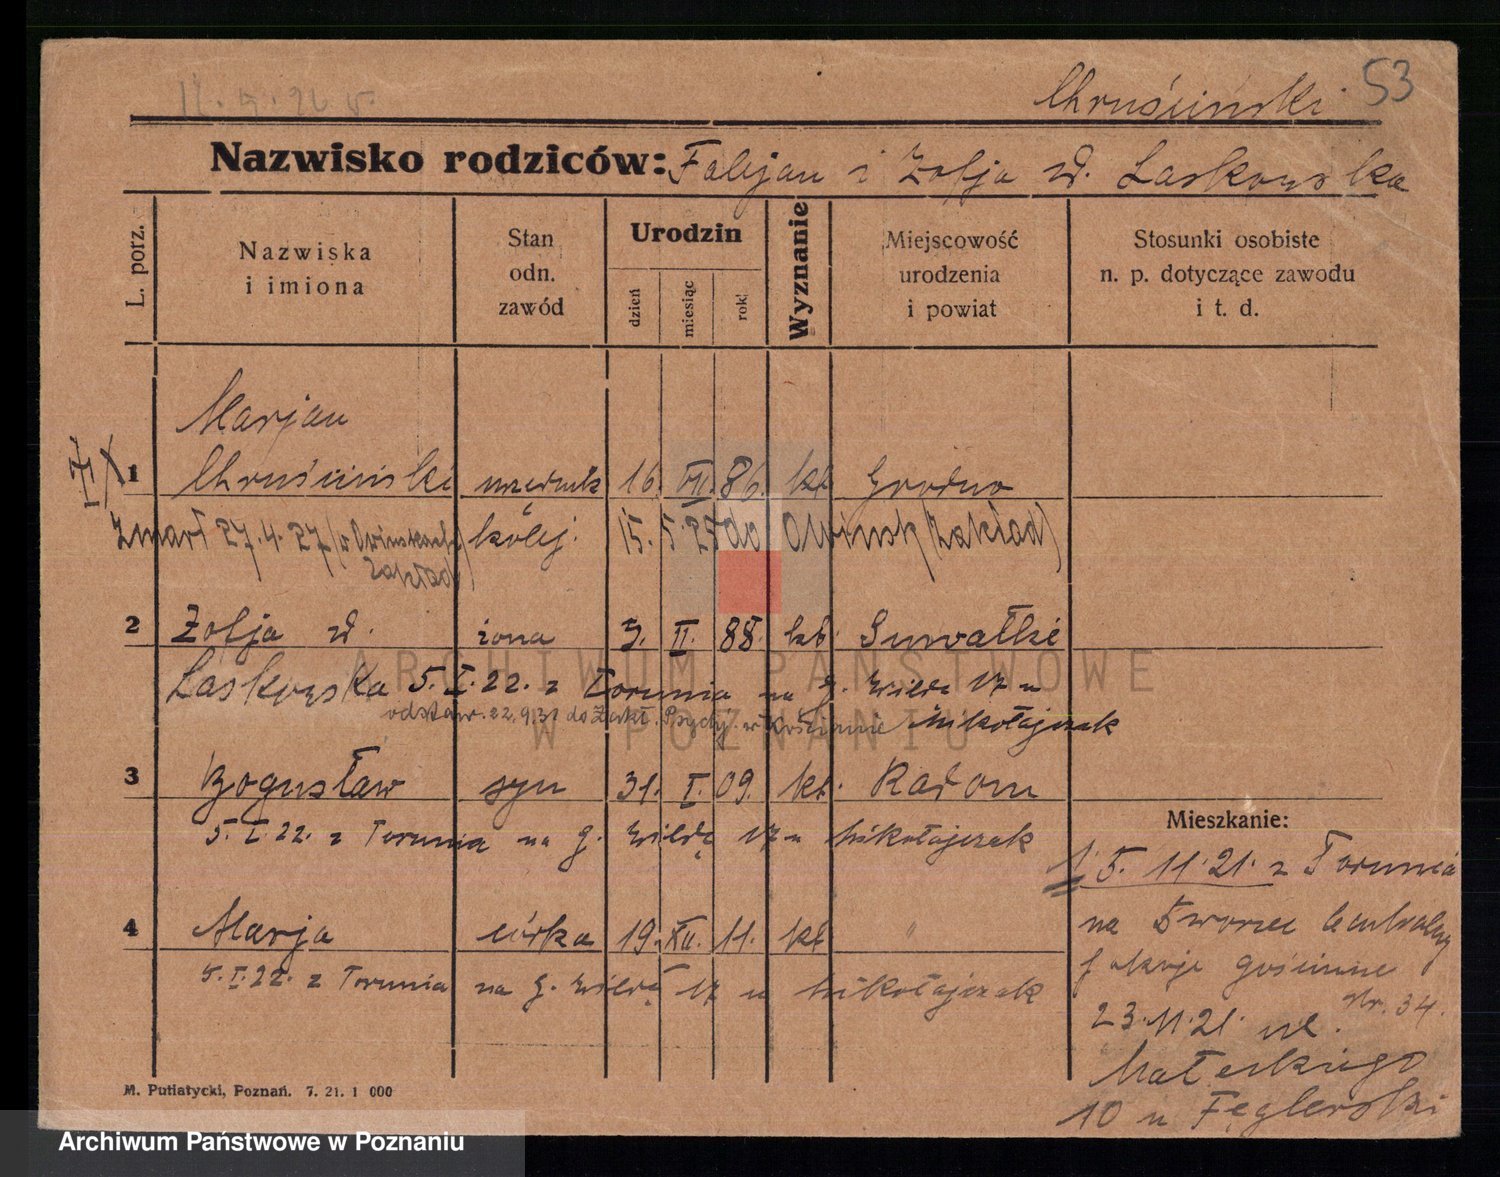 12.9.26 r.
Chruściński 53
Nazwisko rodziców: Fabjan i Zofja z d. Laskowska
L. porz.
Nazwiska i imiona
Stan odn. zawód
Urodzin
dzień miesiąc rok
Wyznanie
Miejscowość urodzenia i powiat
Stosunki osobiste n. p. dotyczące zawodu i t. d.
Marjan
1 Chruściński urzędnik 16. VII. 86. kt. Grodno
Zmarł 27.4.27 (w Owinskach kolej. 15. 5. 25 do Owinsk (Zakład)
Zakład)
2 Zofja z d. żona 3. II. 88. kt. Suwałki
Laskowska 5. I. 22. z Torunia na G. Wildę 17 u
odstaw. 22.9.31 do Zakł. Psych. w Kościanie Mikołajczak
3 Bogusław syn 31. I. 09. kt. Radom
5. I. 22. z Torunia na G. Wildę 17 u Mikołajczak
Mieszkanie:
1) 5. 11. 21. z Torunia
4 Marja córka 19. XII. 11. kt. "
na Dworzec Centralny
pokoje gościnne
5. I. 22. z Torunia na G. Wildę 17 u Mikołajczak
Nr. 34.
23.11.21. ul.
Małeckiego
10 u
M. Putiatycki, Poznań. 7. 21. 1 000
ARCHIWUM PAŃSTWOWE
W POZNANIU
Archiwum Państwowe w Poznaniu